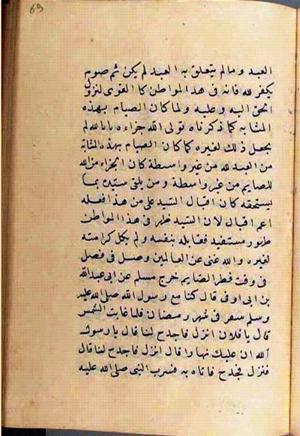 69
العبد وما لم يتعلق به العبد لم يكن ثم صوم
يكفر لله فانه في هذا المواطن كالقوى لنزول
الحق اليه وعليه ولما كان الصيام بهذه
المثابة كما ذكرناه تولى الله جزاءه بانابته لم
يجعل ذلك لغيره كما كان الصيام بهذه المثابة
من العبد لله من غير واسطة كان الجزاء من الله
للصايم من غير واسطة ومن يلق سيده بما
يستحقه كان اقبال السيد على من هذا فعله
اعم اقبال لان السيد ظهر في هذا الموطن
ظهور مستفيد فقابله بنفسه ولم يكل كرامته
لغيره والله غنى عن العالمين وصل في فصل
في وقت فطر الصايم خرج مسلم عن ابي عبدالله
بن ابي اوفى قال كنا مع رسول الله صلى الله عليه
وسلم في سفر في شهر رمضان فلما غابت الشمس
قال يا فلان انزل فاجدح لنا قال يا رسول
الله ان عليك نهارا قال انزل فاجدح لنا قال
فنزل فجدح فاتاه به فشرب النبي صلى الله عليه